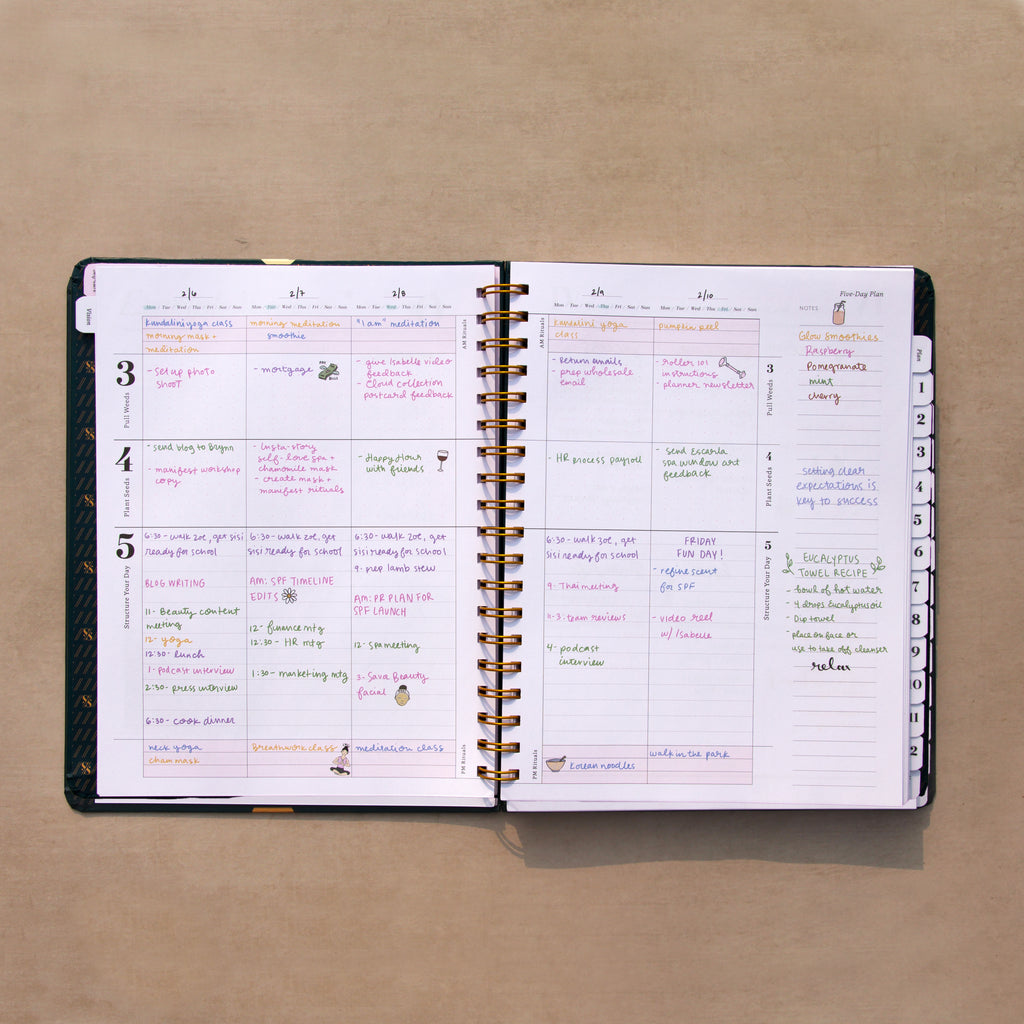 2/6
Mon Tue Wed Thu Fri Sat Sun
kundalini yoga class
morning mask +
meditation
3
Pull Weeds
- set up photo
shoot
4
Plant Seeds
- send blog to Brynn
- manifest workshop
copy
5
Structure Your Day
6:30 - walk zoe, get sisi
ready for school
BLOG WRITING
11 - Beauty content
meeting
12 - yoga
12:30 - lunch
1 - podcast interview
2:30 - press interview
6:30 - cook dinner
neck yoga
cham mask
2/7
Mon Tue Wed Thu Fri Sat Sun
morning meditation
smoothie
- mortgage
- Insta-story
self-love spa +
chamomile mask
- create mask +
manifest rituals
6:30 - walk zoe, get
sisi ready for school
AM: SPF TIMELINE
EDITS
12 - finance mtg
12:30 - HR mtg
1:30 - marketing mtg
Breathwork class
2/8
Mon Tue Wed Thu Fri Sat Sun
"I am" meditation
- give Isabelle video
feedback
- Cloud collection
postcard feedback
- Happy Hour
with friends
6:30 - walk zoe, get
sisi ready for school
9 - prep lamb stew
AM: PR PLAN FOR
SPF LAUNCH
12 - spa meeting
3 - Sava Beauty
facial
meditation class
AM Rituals
PM Rituals
Vision
2/9
Mon Tue Wed Thu Fri Sat Sun
AM Rituals
kundalini yoga
class
- Return emails
- prep wholesale
email
- HR process payroll
6:30 - walk zoe, get
sisi ready for school
9 - Thai meeting
11-3: team reviews
4 - podcast
interview
PM Rituals
Korean noodles
2/10
Mon Tue Wed Thu Fri Sat Sun
pumpkin peel
- roller 101
instructions
- planner newsletter
- send Escarla
spa window art
feedback
FRIDAY
FUN DAY!
- refine scent
for SPF
- video reel
w/ Isabelle
walk in the park
3
Pull Weeds
4
Plant Seeds
5
Structure Your Day
Five-Day Plan
NOTES
Glow Smoothies
Raspberry
Pomegranate
mint
cherry
setting clear
expectations is
key to success
EUCALYPTUS
TOWEL RECIPE
- bowl of hot water
- 4 drops Eucalyptus oil
- Dip towel
- place on face or
use to take off cleanser
relax
Plan
1
2
3
4
5
6
7
8
9
10
11
2